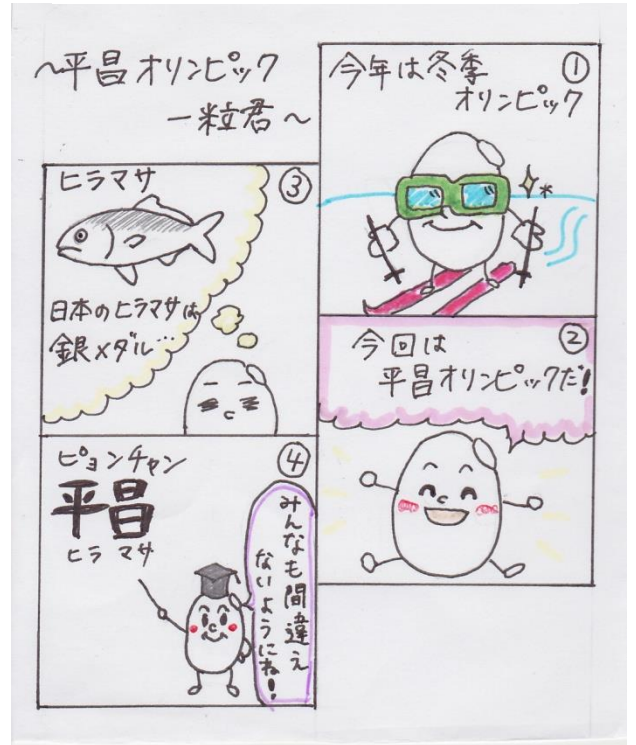 ～平昌オリンピック
一粒君～
①
今年は冬季
オリンピック
②
今回は
平昌オリンピックだ!
③
ヒラマサ
日本のヒラマサは
銀メダル…
④
ピョンチャン
平昌
ヒラマサ
みんなも間違え
ないようにね!